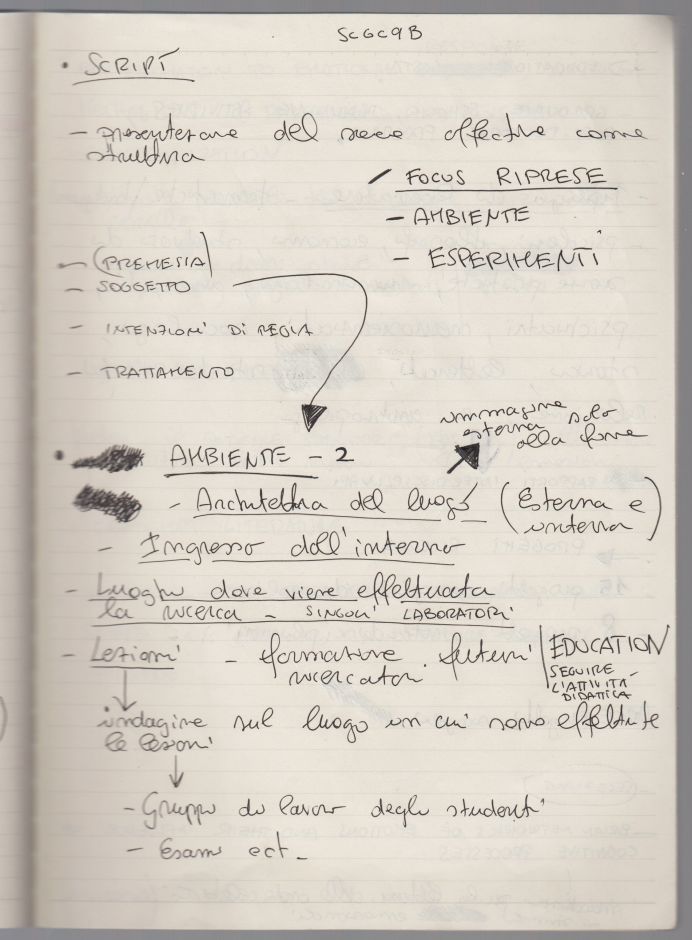 SCGC9B
• SCRIPT
- presentazione del neuro affective come
struttura
/ FOCUS RIPRESE
- AMBIENTE
- ESPERIMENTI
- (PREMESSA)
- SOGGETTO
- INTENZIONI DI REGIA
- TRATTAMENTO
immagine solo
esterna alla fine
• AMBIENTE - 2
- Architettura del luogo (Esterna e
interna)
- Ingresso dall'interno
- Luoghi dove viene effettuata
la ricerca - SINGOLI LABORATORI
- Lezioni - formazione futuri
ricercatori
EDUCATION
SEGUIRE
L'ATTIVITÀ
DIDATTICA
indagine sul luogo in cui sono effettute
le lezioni
- Gruppo di lavoro degli studenti
- Esami ect_